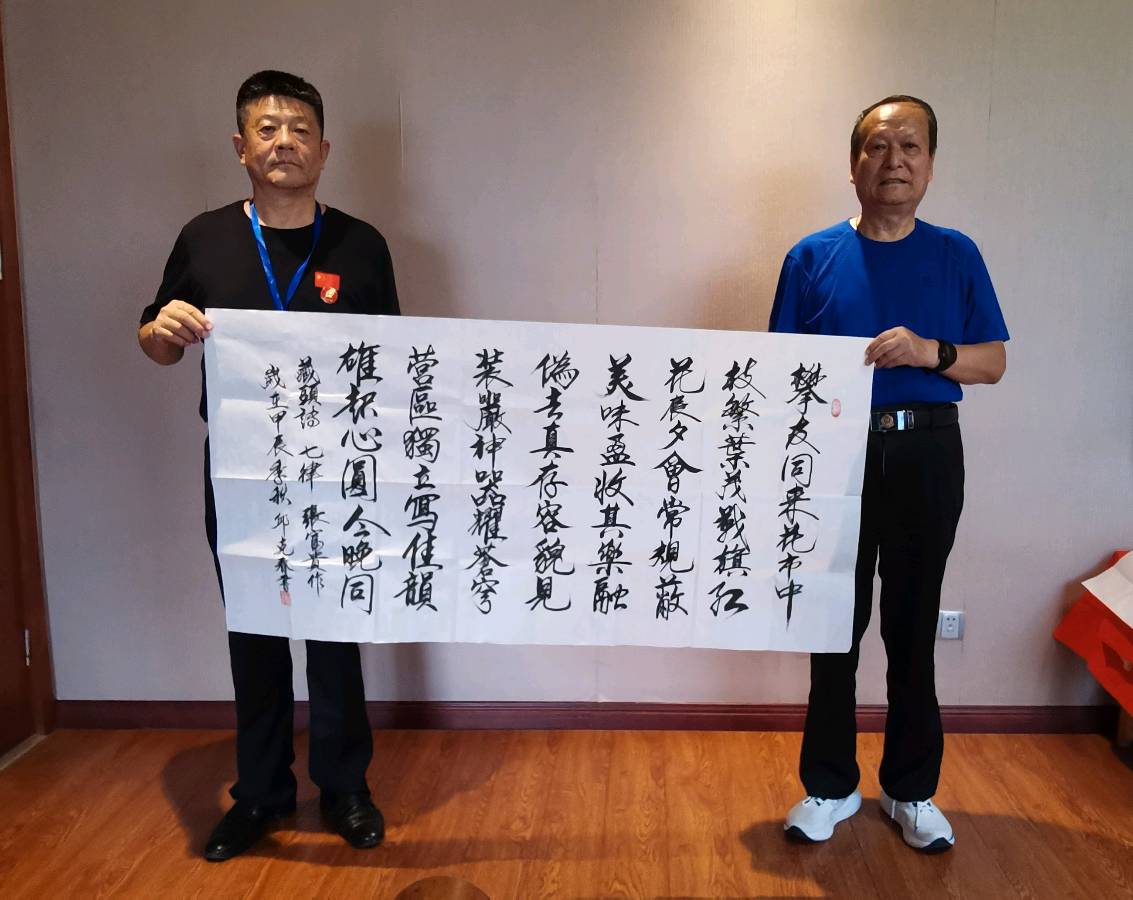 攀友同来花市中
枝繁葉茂戰旗紅
花晨夕會常規蔽
美味盈收其樂融
偽去真存容貌見
裝嚴神器耀蒼穹
营區獨立寫佳韻
雄起心圓今晚同
藏頭詩 七律 張富貴作
歲在甲辰季秋邱克春書